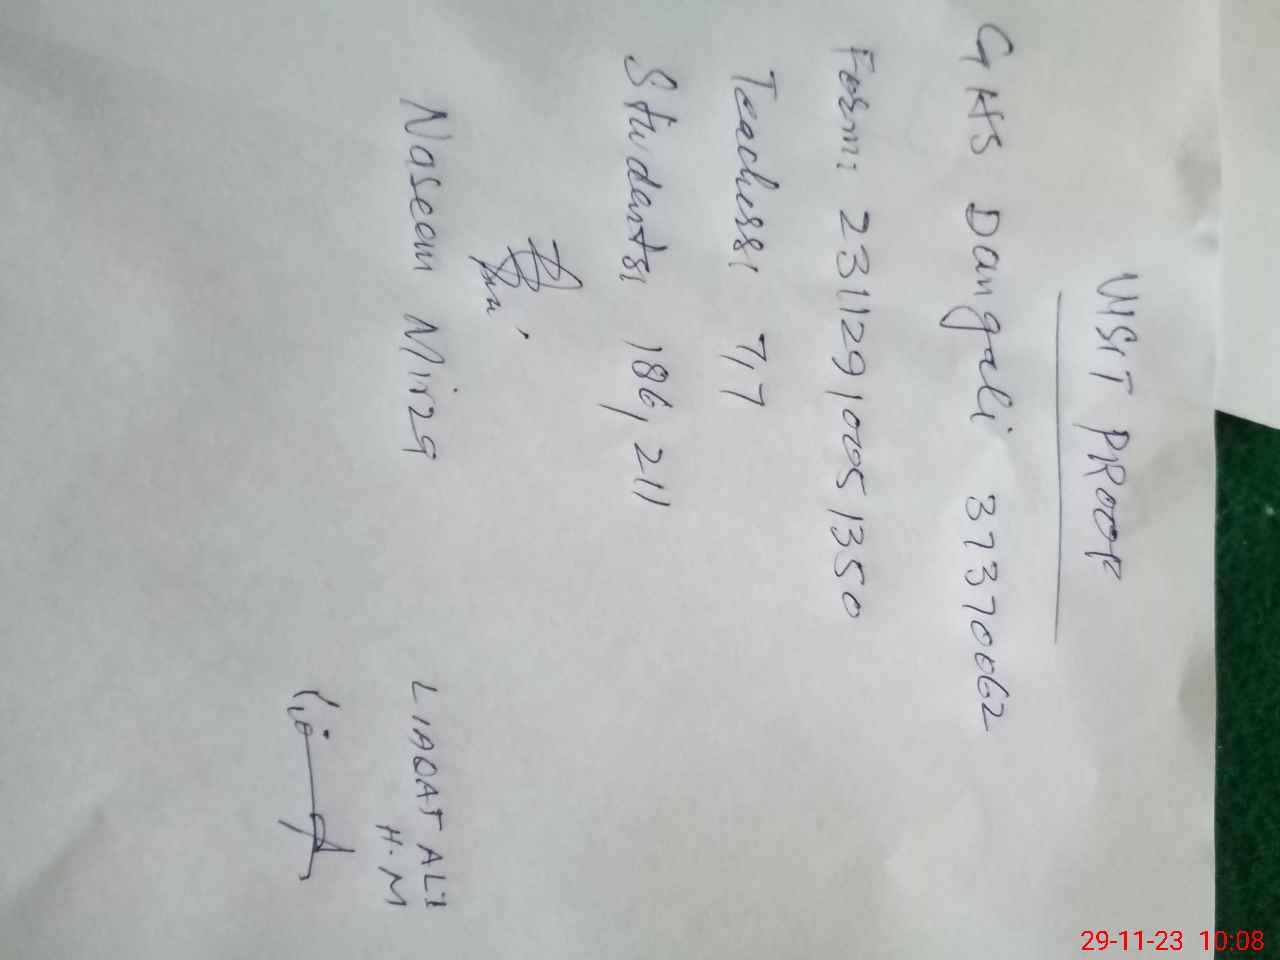 VISIT PROOF
GHS Dangali 37370062
Form: 231129100051350
Teachers: 7,7
Students: 186, 211
Naseem Mirza
LIAQAT ALI
H.M
29-11-23 10:08